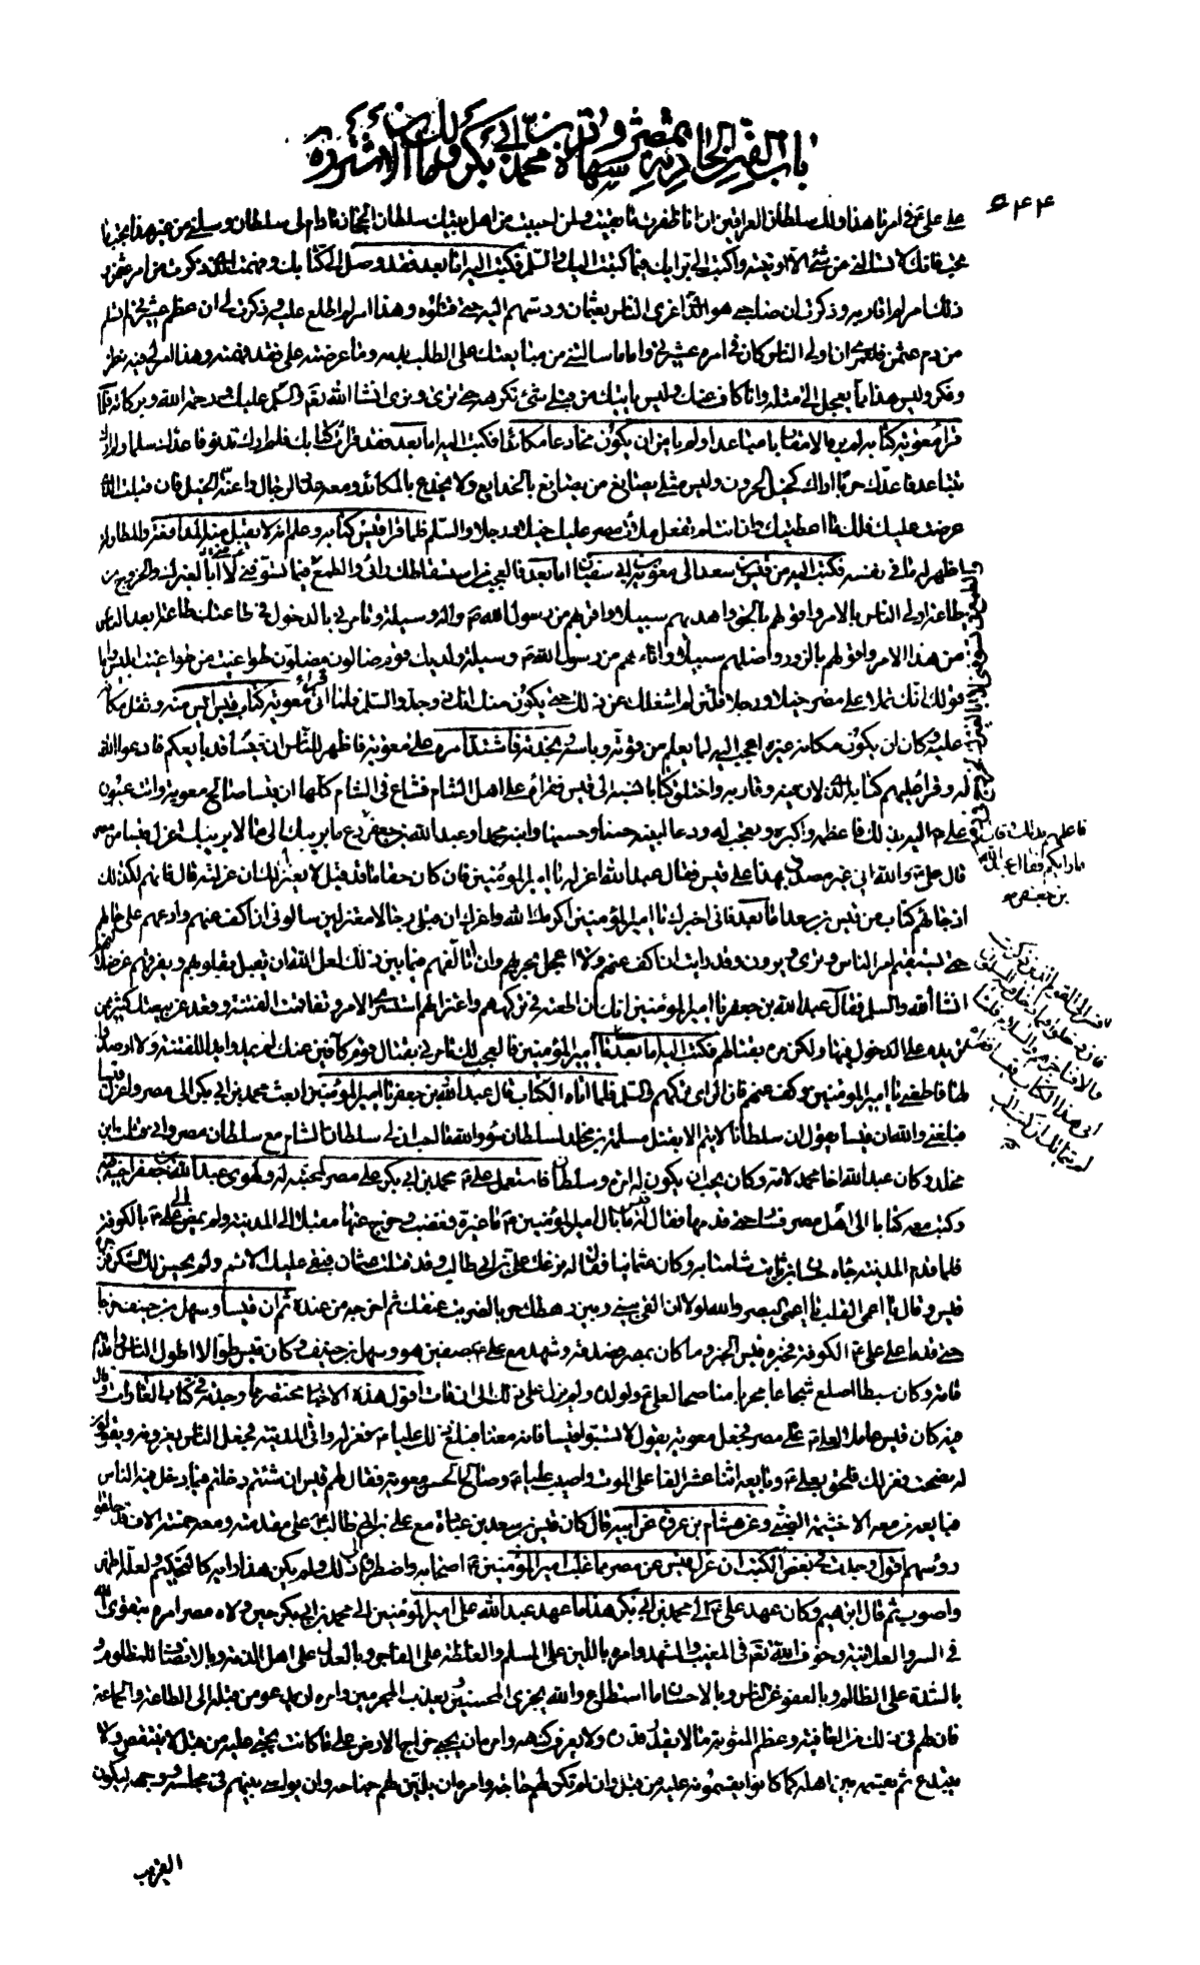 باب الفتن الحادثة بمصر وشهادة محمد بن أبي بكر ومالك الاشتر ره
٦٤٤
علي علی في امرنا هذا ولك سلطان العراقين ان انا ظفرت ما بقيت ولمن احببت من اهل بيتك سلطان الحجاز ما دام لي سلطان وسلني من غير هذا مما
تحب فانك لا تسالني من شئ الا اوتيته واكتب الي برايك فيما كتبت اليك والسلم فكتب اليه اما بعد فقد وصل الي كتابك وفهمت الذي ذكرت من امر عثمن و
ذلك امر لم اقاربه وذكرت ان صاحبي هو الذي اغرى الناس بعثمان ودسهم اليه حتى قتلوه وهذا امر لم اطلع عليه وذكرت لي ان عظم عشيرتي لم تسلم
من دم عثمن فلعمري ان اولى الناس كان في امره عشيرتي واما ما سالتني من مبايعتك على الطلب بدمه وما عرضته علي فقد فهمته وهذا امر لي فيه نظر
وفكر وليس هذا مما يعجل الى مثله وانا كاف عنك وليس ياتيك من قبلي شئ تكرهه حتى ترى ونرى انشا الله تعم والسلم عليك ورحمة الله وبركاته فلما
قرا معوية كتابه لم يره الا مقاربا مباعدا ولم يامن ان يكون مخادعا مكائدا فكتب اليه اما بعد فقد قرات كتابك فلم ارك تدنو فاعدك سلما ولم ارك
تتباعد فاعدك حربا اراك كحبل الجرور وليس مثلي يصانع بالخدايع ولا يخدع بالمكائد ومعه عدد الرجال واعنة الخيل فان قبلت الذي
عرضت عليك فلك ما اعطيتك وان انت لم تفعل ملات مصر عليك خيلا ورجلا والسلم فلما قرا قيس كتابه وعلم انه لا يقبل منه المدافعة والمطاولة
اظهر له ما في نفسه فكتب اليه من قيس بن سعد الى معوية بن ابي سفين اما بعد فالعجب من استسقاطك رائي والطمع فيما تسومني لا ابا لغيرك والخروج من
طاعة اولى الناس بالامر واقولهم بالحق واهديهم سبيلا واقربهم من رسول الله ص واله وسيلة وتامرني بالدخول في طاعتك طاعة ابعد الناس
من هذا الامر واقولهم بالزور واضلهم سبيلا وانائهم من رسول الله ص وسيلة ولديك قوم ضالون مضلون طواغيت من طواغيت ابليس واما
قولك انك تملا علي مصر خيلا ورجلا فلئن لم اشغلك عن ذلك حتى يكون منك انك ذو جد والسلم فلما اتى معوية كتاب قيس ايس منه وثقل مكانه
عليه وكان ان يكون مكانه غيره اعجب اليه لما يعلم من قوته وباسه ونجدته فاشتد امره على معوية فاظهر للناس ان قيسا قد بايعكم فادعوا الله
له وقرا عليهم كتابه الذي لان فيه وقاربه واختلق كتابا نسبه الى قيس فقراه على اهل الشام فشاع في الشام كلها ان قيسا صالح معوية واتت عيون
علي ع اليه بذلك فاعظمه واكبره وتعجب له ودعا ابنيه حسنا وحسينا وابنه محمدا وعبد الله بن جعفر دع ما يريبك الى ما لا يريبك اعزل قيسا من مصر
قال علي ع والله اني غير مصدق بهذا على قيس فقال عبد الله اعزله يا امير المؤمنين فان كان حقا ما قد قيل لا يعتزل لك ان عزلته قال فانهم لكذلك
اذ جاءهم كتاب من قيس بن سعد اما بعد فاني اخبرك يا امير المؤمنين اكرمك الله واعزك ان قبلي رجالا معتزلين سالوني ان اكف عنهم وادعهم على حالهم
حتى يستقيم امر الناس ونرى ويرون وقد رايت ان اكف عنهم ولا اعجل بحربهم وان اتالفهم فيما بين ذلك لعل الله ان يقبل بقلوبهم ويفرقهم عن ضلالتهم
انشا الله والسلم فقال عبد الله بن جعفر يا امير المؤمنين انك ان اطعته في تركهم واعتزالهم استشرى الامر وتفاقمت الفتنة وقعد عن بيعتك كثير ممن
تريده على الدخول فيها ولكن مره بقتالهم فكتب اليه اما بعد يا امير المؤمنين فالعجب لك تامرني بقتال قوم كافين عنك لم يمدوا يدا للفتنة ولا ارصدوا
لها فاطعني يا امير المؤمنين وكف عنهم فان الراي تركهم والسلم فلما اتاه الكتاب قال عبد الله بن جعفر يا امير المؤمنين ابعث محمد بن ابي بكر الى مصر واعزل قيسا
فبلغني والله ان قيسا يقول ان سلطانا لا يتم الا بقتل مسلمة بن مخلد لسلطان سوء والله ما احب ان لي سلطان الشام مع سلطان مصر واني قتلت ابن
مخلد وكان عبد الله اخا محمد لامه وكان يحب ان يكون له امرة وسلطان فاستعمل علي ع محمد بن ابي بكر على مصر لمحبته له ولهوى عبد الله بن جعفر اخيه فيه
وكتب معه كتابا الى اهل مصر فسار حتى قدمها فقال له قيس ما بال امير المؤمنين ع ما غيره فغضب وخرج عنها مقبلا الى المدينة ولم يمض الى علي ع بالكوفة
فلما قدم المدينة جاءه حسان بن ثابت شامتا به وكان عثمانيا فقال له نزعك علي بن ابي طالب وقد قتلت عثمان فبقي عليك الاثم ولم يحسن لك الشكر فزجره
قيس وقال يا اعمى القلب يا اعمى البصر والله لولا ان القي بيني وبين رهطك حربا لضربت عنقك ثم اخرجه من عنده ثم ان قيسا وسهل بن حنيف خرجا
حتى قدما على علي ع الكوفة فخبره قيس الخبر وما كان بمصر فصدقه وشهد مع علي ع بصفين هو وسهل بن حنيف وكان قيس طوالا اطول الناس وامدهم
قامة وكان سبطا اصلع شجاعا مجربا مناصحا لعلي ع ولولده ولم يزل على ذلك الى ان مات اقول هذه الاخبار مختصرة وجدته في كتاب الغارات قال
فيه كان قيس عاملا لعلي ع على مصر فجعل معوية يقول لا تسبوا قيسا فانه معنا فبلغ ذلك عليا ع فعزله واتى المدينة فجعل الناس يغرونه ويقولون
له نصحت فعزلك فلحق بعلي ع وبايعه اثنا عشر الفا على الموت واصيب علي ع وصالح الحسن معوية فقال لهم قيس ان شئتم دخلتم فيما دخل فيه الناس
فبايعه من معه الا خثيمة الضبي وعن هشام بن عروة عن ابيه قال كان قيس بن سعد بن عبادة مع علي بن ابي طالب ع على مقدمته ومعه خمسة الاف قد حلقوا
رؤسهم اقول وجدت في بعض الكتب ان عزل قيس عن مصر مما غلب امير المؤمنين ع اصحابه واضطروه الى ذلك ولم يكن هذا رايه كالتحكيم ولعله اظهر
واصوب ثم قال ابرهيم وكان عهد علي ع الى محمد بن ابي بكر هذا ما عهد عبد الله علي امير المؤمنين الى محمد بن ابي بكر حين ولاه مصر امره بتقوى الله
في السر والعلانية وخوف الله تعم في المغيب والمشهد وامره باللين على المسلم والغلظة على الفاجر وبالعدل على اهل الذمة وبالانصاف للمظلوم و
بالشدة على الظالم وبالعفو عن الناس وبالاحسان ما استطاع والله يجزي المحسنين ويعذب المجرمين وامره ان يدعو من قبله الى الطاعة والجماعة
فان لهم في ذلك من العاقبة وعظم المثوبة ما لا يقدر قدره ولا يعرف كنهه وامره ان يجبي خراج الارض على ما كانت تجبى عليه من قبل لا ينتقص ولا
يبتدع ثم يقسمه بين اهله كما كانوا يقسمونه عليه من قبل وان لم تكن لهم حاجة وامره ان يلين لهم جناحه وان يواسي بينهم في مجلسه ووجهه ليكون
فاعلمهم بذلك وقال
ما رايكم فقال عبد الله
بن جعفر صح
القريب